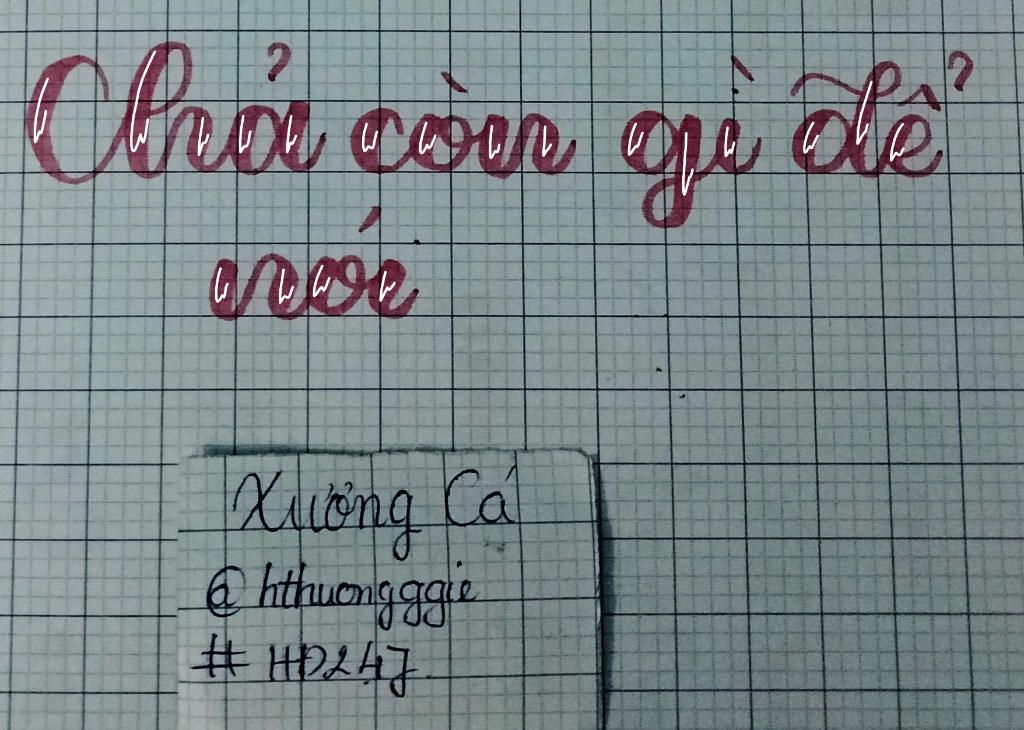 Chỏi còn gì để
nói
Xương Cá
@hthuongggie
#HD247